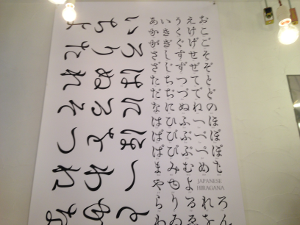 いろはにほへと
ちりぬるをわか
よたれそつね
あいうえお
かきくけこ
がぎぐげご
さしすせそ
ざじずぜぞ
たちつてと
だぢづでど
なにぬねの
はひふへほ
ばびぶべぼ
ぱぴぷぺぽ
まみむめも
JAPANESE
HIRAGANA
らりるれろ
わゐゑをん